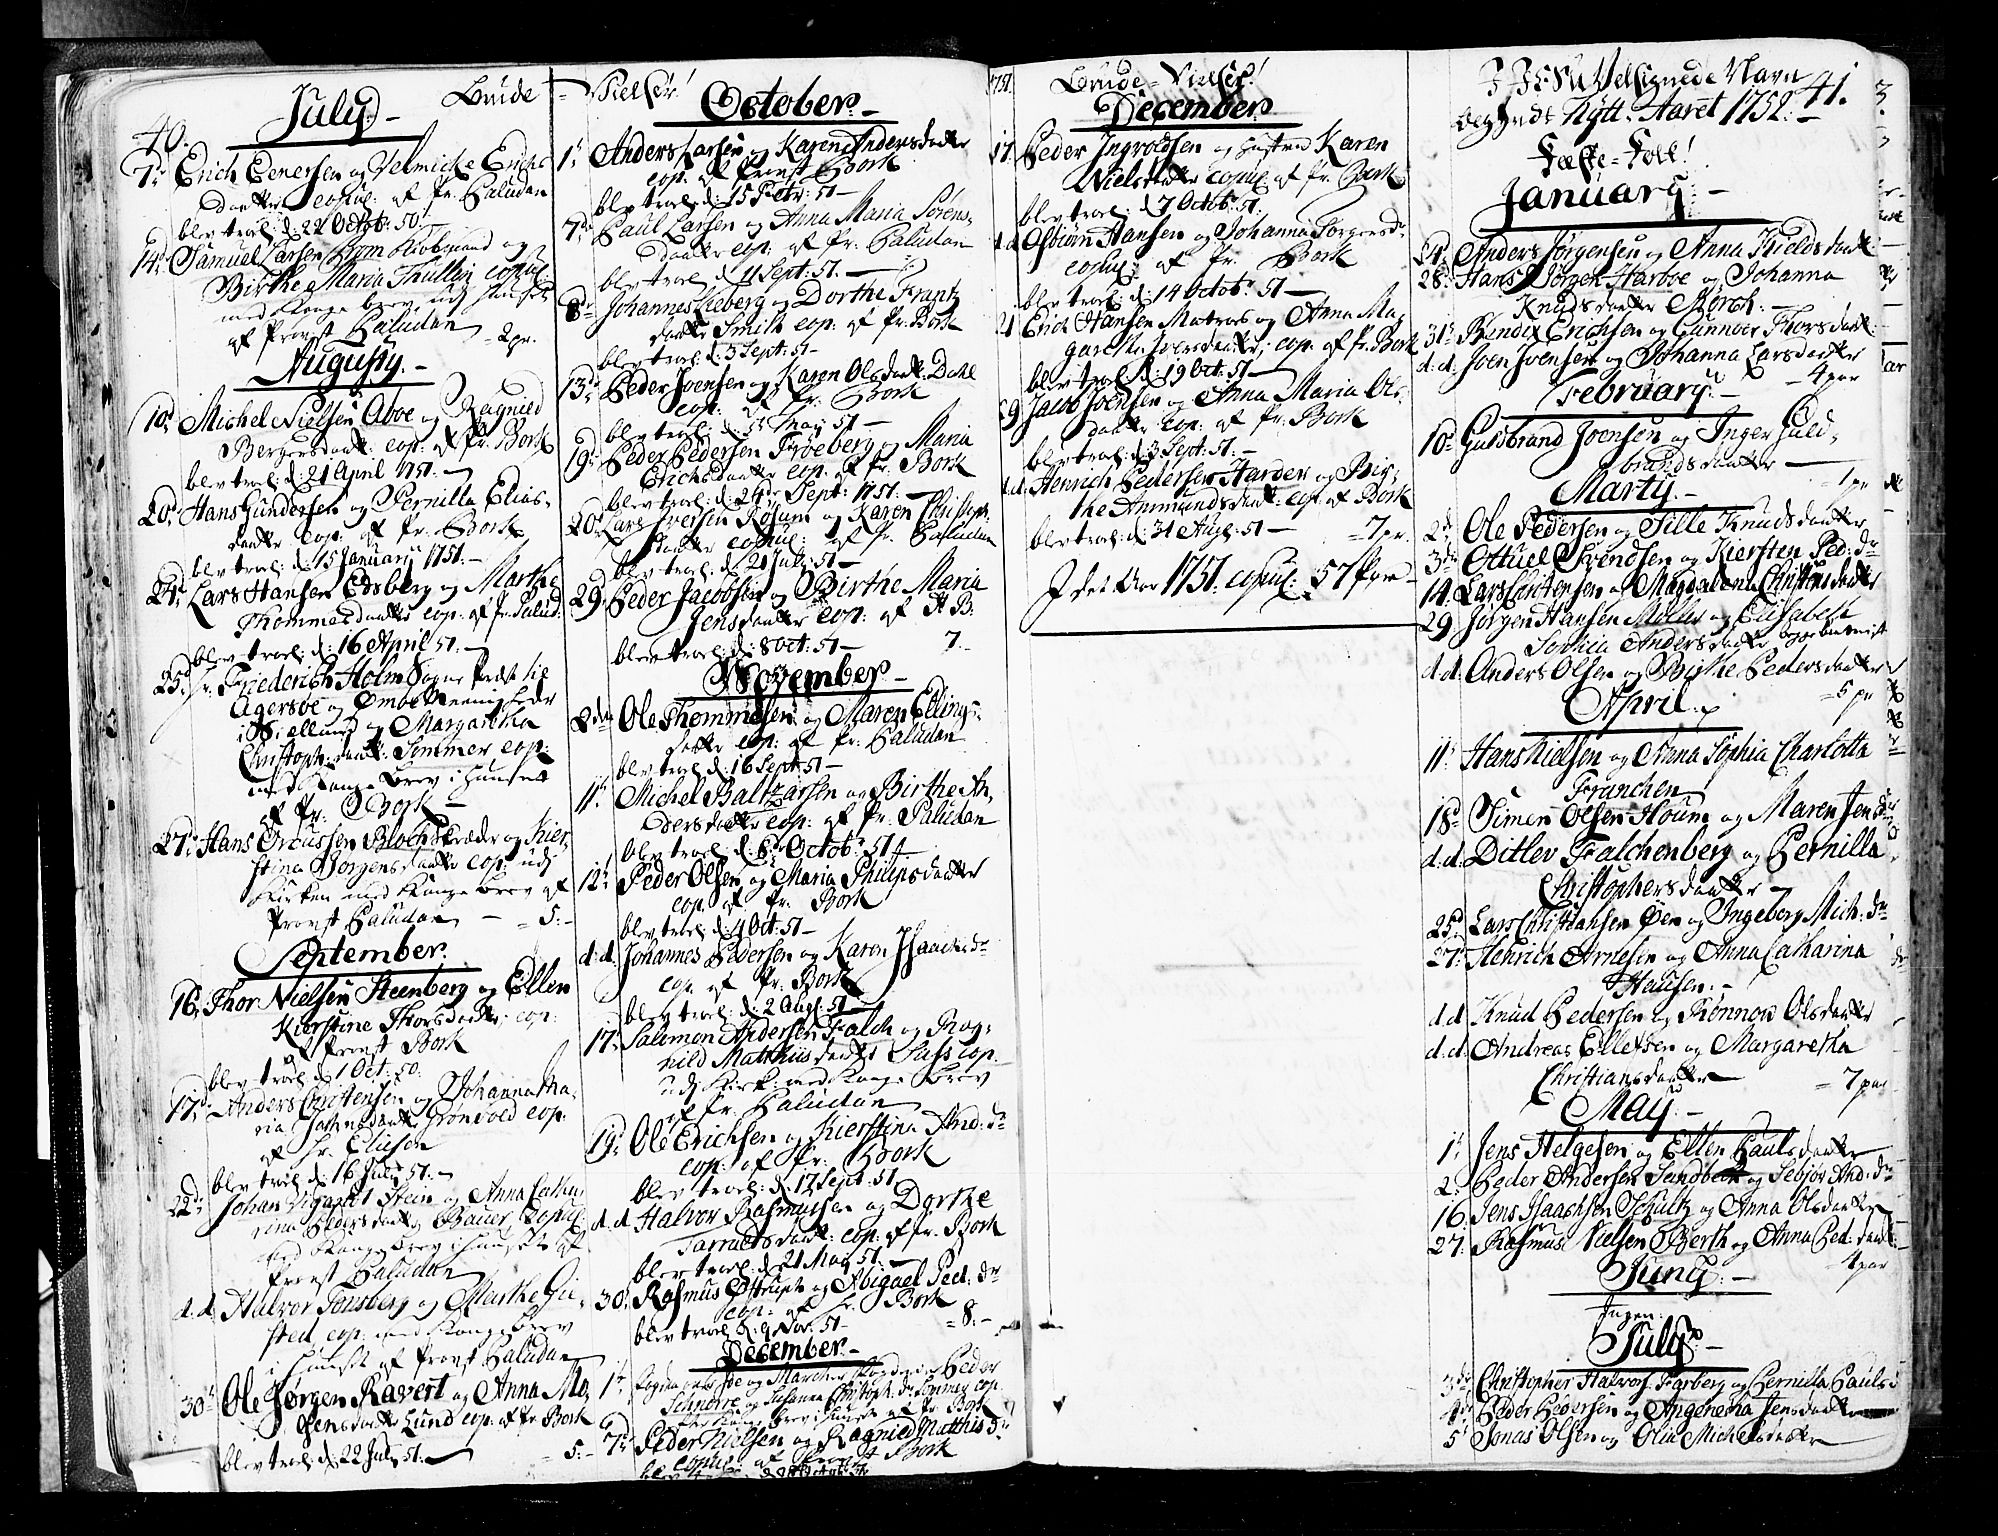 40.
Brude = Vielser!
July. -
7de Erich Evensen og Velmicke Erichs
daatter copul: af Pr: Paludan
blev trol: d: 22 Octob: 50. -
14d. Samuel Larsen Kiøbmand og
Birthe Maria Thullin copul:
med Konge brev udj Huuset
af Provst Paludan = 2 pr.
Augusty. -
10d Michel Nielsen Aboe og Ragnild
Bergersdaatt: cop: af Pr: Bork
blev trol: d: 21 April 1751. -
20d Hans Gundersen og Pernilla Elias-
daatter cop. af Pr: Bork
blev trol: d: 15 January 1751. -
24d Lars Hansen Edsberg og Marthe
Thommesdaatter cop: af Pr: Palud:
blev trol: d: 16 April 51. -
25d hr. Friederich Holm Sogne Præst til
Agersøe og Omøe Meenigheder
i Siælland og Margaretha
Christoph:daatt: Semmer cop:
med Konge Brev i Huuset
af Pr: Bork -
27d: Hans Bloch Skræder og Kier-
stina Borgensdaatter cop: udj
Kirken med Konge Brev af
Provst Paludan - = 5: -
September. -
16. Thor Nielsen Steenberg og Ellen
Kierstine Thorsdaatter: cop:
af Provst Bork
blev trol: d 1 Oct: 50.
17d: Anders Christensen og Johanna Ma-
ria Grønvold cop:
af hr. Eliesen
blev trol: d: 16 July 51. -
22de Johan Stein og Anna Catha-
rina Pedersdaatter Bauer, Copul:
med Konge brev i Huuset af
Provst Paludan
d: d. Halvor Tonsberg og Marthe Gie-
sted cop: med Konge brev
i Huuset af Provst Paludan
30te Ole Jørgen Ravert og Anna Mo-
gensdaatter Lund cop: af Pr: Bork
blev trol: d: 22 July 51. - = 5: -
October. -
1t Anders Larsen og Karen Andersdaatter
cop: af Provst Bork
blev trol: d: 15 51 -
7de Paul Larsen og Anna Maria Sørens-
daatter cop: af Pr: Paludan
blev trol: d 11 Sept: 51. -
8de Johannes Lieberg og Dorthe Frantz
daatter Smith cop: af Pr: Bork
blev trol: d: 3 Sept: 51 -
13de Peder Joensen og Karen Olsdaatt: Dahl
cop: af Pr: Bork
blev trol: d: May 51 -
19d: Peder Pedersen Frøeberg og Maria
Erichsdaatter cop: af Pr: Bork
blev trol: d: 24de Sept: 1751. -
20d Lars Iversen Rosum og Karen Christoph-
daatter copul: af Pr: Paludan
blev trol: d 20 July 51 -
29. Peder Jacobsen og Birthe Maria
Jensdaatter cop: af H B.
blev trol: d: 8 Oct: 51 - 7. -
November. -
2den Ole Thommesen og Maren Elling-
daatter cop: af Pr: Paludan
blev trol: d: 16 Sept: 51 -
11t Michel Baltzarsen og Birthe An-
dersdaatter cop: af Pr: Paludan
blev trol: d: 6te Octob: 51 -
12t Peder Olsen og Maria Philipsdaatter
cop. af Pr: Bork
blev trol: d: 4 Oct: 51 -
d: d: Johannes Pedersen og Karen Isaachs:dr
cop. af Pr: Bork
blev trol: d: 2 Aug: 51 -
17: Salomon Andersen Falch og Rag-
nild Matthiisdaatter Sass cop.
udj Kirk: med Konge Brev
af Pr: Paludan
19d Ole Erichsen og Kierstina And:dr
cop: af Pr: Bork
blev trol: d 12 Sept: 51
d. d. Halvor Rasmussen og Dorthe
Tarraldsdaatt: cop: af Pr: Bork
blev trol: d: 21 May 51: -
30. Rasmus og Abigael Ped: dr
cop: af hr: Bork
blev trol: d: 9 Nov: 51 - = 8: -
December. -
1t og Marcher Peder
Schnorre og Susanna Christoph: dr Semmer cop.
Konge brev i Huuset af Pr: Bork
7de Peder Nielsen og Ragnild Matthis dr
copul: af Provst Bork
1751.
Brude = Vielser!
December.
17. Peder Ingvoldsen og Hustrue Karen
Nielsdaatter copul: af Pr: Bork
blev trol: d 7 Octob: 51.
d. d Osbiørn Hansen og Johanna Torgersd:
copul: af Pr: Bork
blev trol: d: 14 Octob: 51 -
21 Erich Hansen Matros og Anna Ma-
garetha Iversdaatter: cop: af Pr: Bork
blev trol: d: 19 Oct: 51 -
29 Jacob Joensen og Anna Maria Ols-
daatter cop: af Pr: Bork
blev trol: d: 3 Sept: 51: -
d. d. Henrich Pedersen Harder og Bir-
the Ammundsdaatt: cop: af Bork
blev trol: d: 31 Aug: 51 - = 7 pr.
I det Aar 1751. copul: 57 Par -
41.
I JESU Velsignede Navn
begyndes Nytt-Aaret 1752: -
Fæste-Folk!
January. -
24. Anders Jørgensen og Anna Kieldsdaatt
28. Hans Jørgen Harboe og Johanna
Knudsdaatter Storch: -
31t Bendix Erichsen og Gunnoer Thorsdaatt:
d. d. Joen Joensen og Johanna Larsdaatter
- 4 par
February. -
10d Guldbrand Joensen og Inger Guld-
brandsdaatter - - 1 pr
Marty. -
2d. Ole Pedersen og Sille Knudsdaatter
3de Ottuel Svendsen og Kiersten Ped: dr
14. Lars Christensen og Magdalena Christensdaatter
29 Jørgen Hansen Møller og Elisabeth
Sophia Andersdaatter
d. d: Anders Olsen og Birthe Pedersdaatter
= 5 pr
April.
11t Hans Nielsen og Anna Sophia Charlotta
Franchen
18d Simen Olsen Houm og Maren Jensdr
d. d: Ditlev Falchenberg og Pernilla
Christophersdaatter -
25d Lars Christiansen Øen og Ingeberg Mich: dr
27: Henrich Arnesen og Anna Catharina
Hansen: -
d. d Knud Pedersen og Rønnow Olsdaatter
d: d. Andreas Ellefsen og Margaretha
Christiansdaatter = 7 par
May. -
1t Jens Helgesen og Ellen Paulsdaatter
2. Peder Andersen Sandbech og Sebjør And: dr
16 Jens Isaachsen Schultz og Anna Olsdaatter
27. Rasmus Nielsen Berth og Anna Ped: daatt:
- 4 par
Juny. -
Ingen.
July. -
3de Christopher Halvors: Farberg og Pernilla Pauls
4de Peder Pedersen og Angenetha Jensdaatter
5t Jonas Olsen og Olia Michelsdaatter